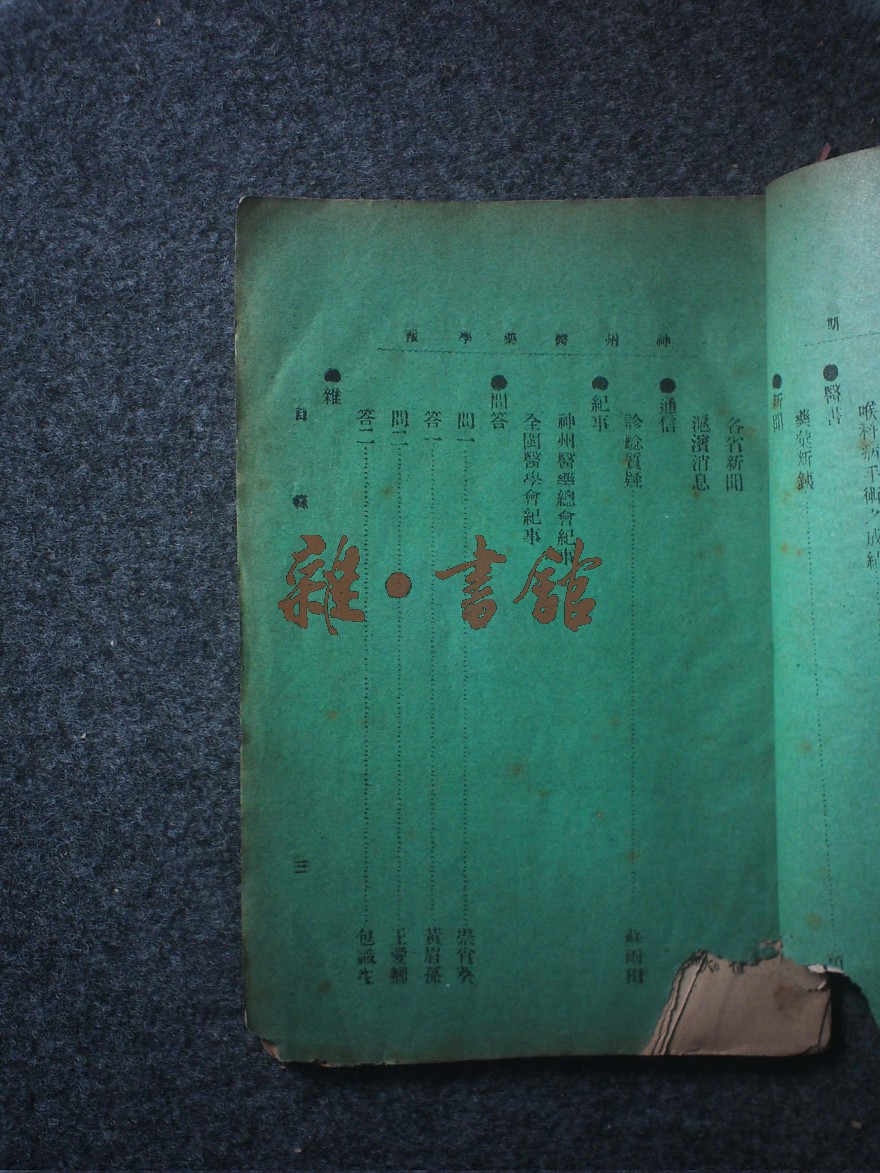 期
喉科病手術之成紀
●醫書
藥彙新錄
●新聞
神州醫藥學報
各省新聞
滬濱消息
●通信
診騐質疑 蘇雨田
●紀事
神州醫藥總會紀事
全閩醫學會紀事
●問答
問一 崇省葵
答一 黃眉孫
問二 王愛鄉
答二 包識生
●雜
目錄 三
雜·書館